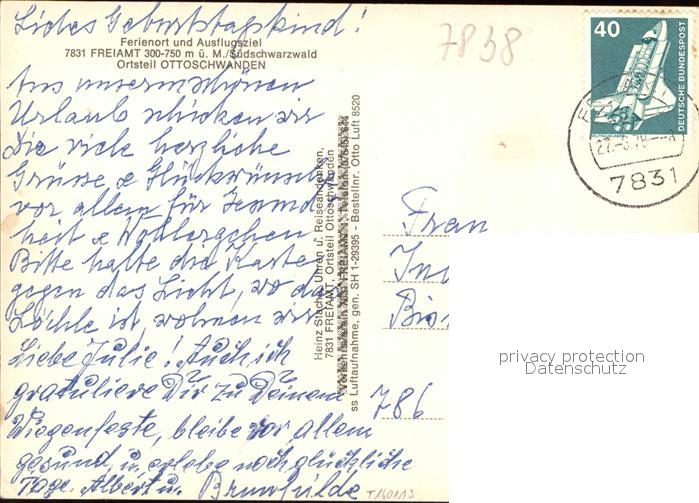 Liebes Geburtstagskind!
Ferienort und Ausflugsziel
7831 FREIAMT 300-750 m ü. M./Südschwarzwald
Ortsteil OTTOSCHWANDEN
Aus unserm schönen
Urlaub schicken wir
Dir viele herzliche
Grüsse & Glückwünsche
vor allem für Gesund
heit & Wohlergehen
Bitte halte die Karte
gegen das Licht, wo das
Löchle ist, wohnen wir
Liebe Julie! Auch ich
gratuliere Dir zu Deinem
Wiegenfeste, bleibe vor allem
gesund, u. erlebe noch glückliche
Tage. Albert u. Brunhilde
T140113
Heinz Stache, Uhren u. Reiseandenken,
7831 FREIAMT, Ortsteil Ottoschwanden
ss Luftaufnahme, gen. SH 1-29395 - Bestellnr. Otto Luft 8520
7838
40
DEUTSCHE BUNDESPOST
7831
Frau
786
privacy protection
Datenschutz